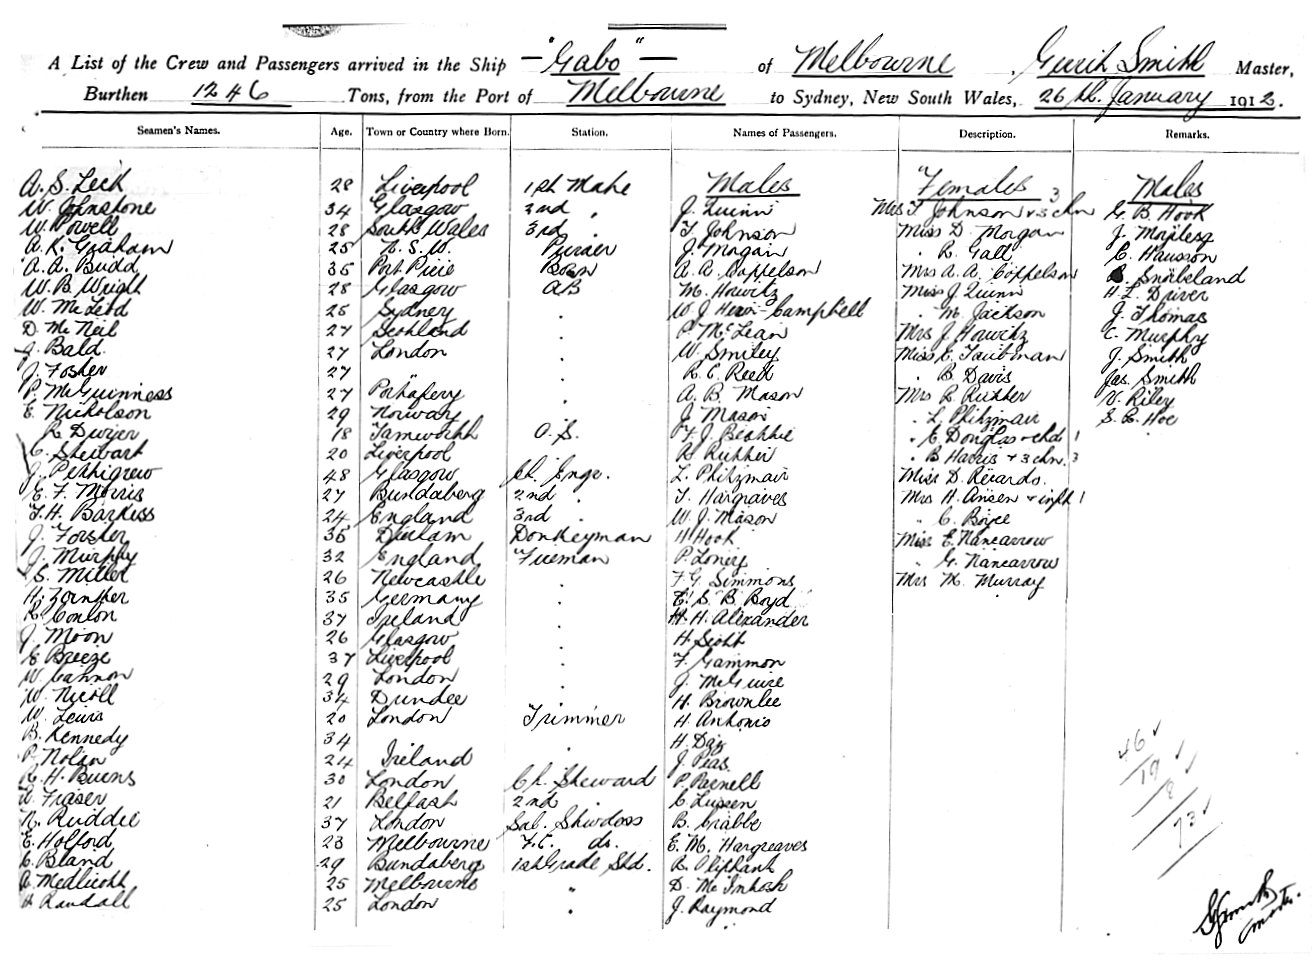 A List of the Crew and Passengers arrived in the Ship "Gabo" of Melbourne Gerrit Smith Master,
Burthen 1246 Tons, from the Port of Melbourne to Sydney, New South Wales, 26th January 1912.
Seamen's Names. Age. Town or Country where Born. Station. Names of Passengers. Description. Remarks.
Males "Females Males
A. S. Leck 28 Liverpool 1st Mate J. Quinn Mrs T Johnson & 3 chn 3 G B Hook
W. Johnstone 34 Glasgow 2nd " T Johnson Miss D. Morgan J.
W. Powell 28 South Wales 3rd " J. Morgan " R. Gall C.
A. R. Graham 25 N. S. W. Purser A. A. Coppelson Mrs A. A. Coppelson Snaiseland
A. A. Budd 35 Port Pirie Bosn M. Howitz Miss J. Quinn H. L. Driver
W. B. Wright 28 Glasgow AB W. J. Campbell " M. Jackson J. Thomas
W. McLeod 25 Sydney " P. McLean Mrs J Howitz C. Murphy
D. McNeil 27 Scotland " W. Smiley Miss E. Taubman J. Smith
J. Bald 27 London " R. C. Reed " B. Davis Jas. Smith
J. Foster 27 " " A. B. Mason Mrs R Rutter N. Riley
P. McGuinness 27 " J. Mason " L. Phitzmair S. C. Hoe
E. Nicholson 29 Norway " F. J. Beattie " E. Douglas & chd 1
R Dwyer 18 Tamworth O. S. R. Rutter " B Harris & 3 chn. 3
C. Stewart 20 Liverpool " L. Phitzmair Miss D. Ricards.
J. Pettigrew 48 Glasgow Ch. Engr. T. Hargraves Mrs H. Ansen & inft 1
E. F. Morris 27 Bundaberg 2nd " W. J. Mason " C. Boyce
F. H. Barkess 24 England 3rd " H Hook Miss E. Nancarrow
J. Forster 35 Durham Donkeyman P. Loney " G. Nancarrow
J. Murphy 32 England Fireman F. G. Simmons Mrs M. Murray
S. Miller 26 Newcastle " E. S. B. Boyd
H. 35 Germany " H. H. Alexander
R. Conlon 37 Ireland " H. Scott
J. Moon 26 Glasgow " F. Gammon
E Breeze 37 Liverpool " J. McGuire
W. Cannon 29 London " H. Brownlee
W. Nicoll 34 Dundee " H. Antonio
W. Lewis 20 London Trimmer H. Day
B. Kennedy 34 " J. Pias
P. Nolan 24 Ireland " P. Parnell
R. H. Burns 30 London Ch. Steward C. Lussen
A. Fraser 21 Belfast 2nd " B. Crabbe
R. Ruddle 37 London Sal. Stwdess E. M. Hargreaves
E. Holford 23 Melbourne F. C. do. R. Oliphant
C. Bland 29 Bundaberg 1st Grade Std. D. McIntosh
A. Medlicott 25 Melbourne " J. Raymond
H Randall 25 London "
46
19
8
73
Master.